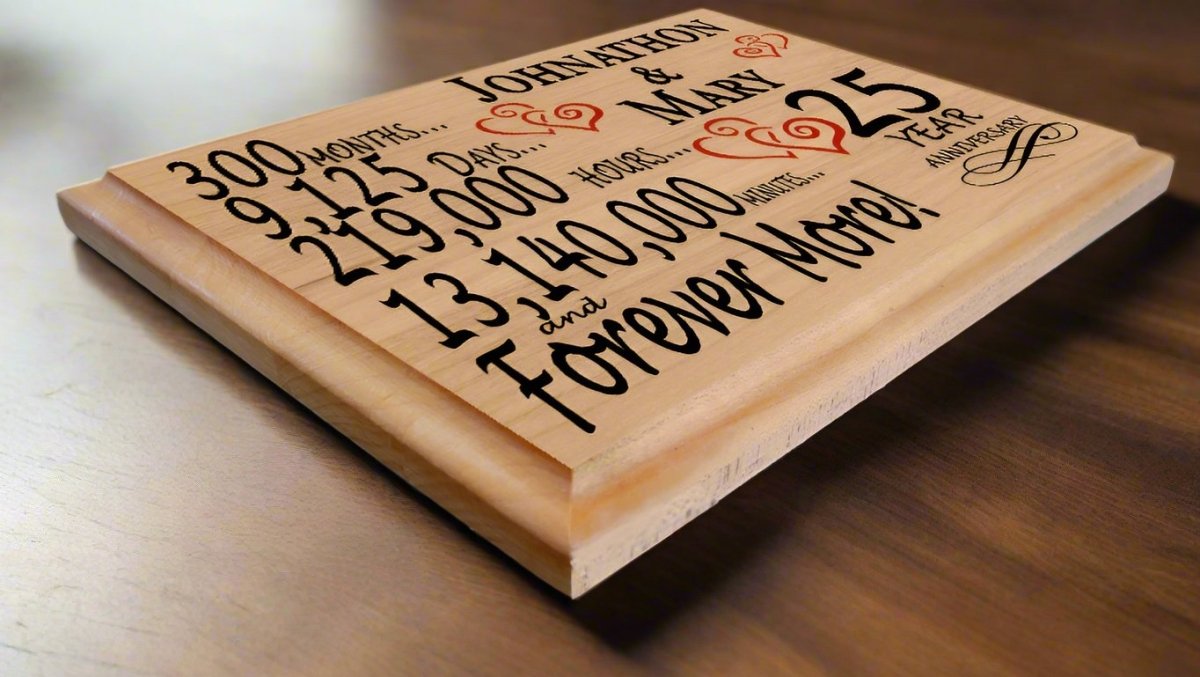 JOHNATHON
&
MARY
25
YEAR
ANNIVERSARY
300 MONTHS...
9,125 DAYS...
219,000 HOURS...
13,140,000 MINUTES...
and
Forever More!